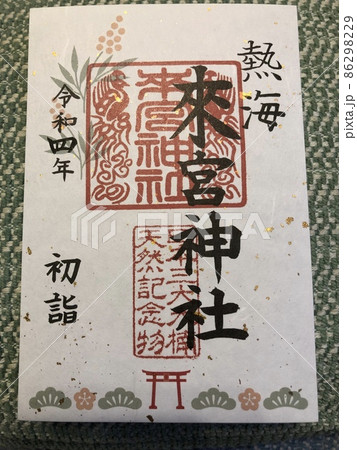 熱海
來宮神社
令和四年
初詣
來宮神社
天然記念物
PIXTA
pixta.jp - 86298229